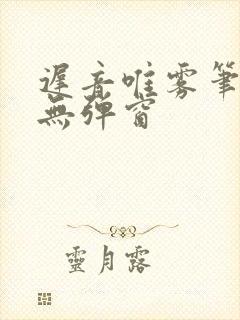 遲音唯雾筆
無彈窗
靈月露